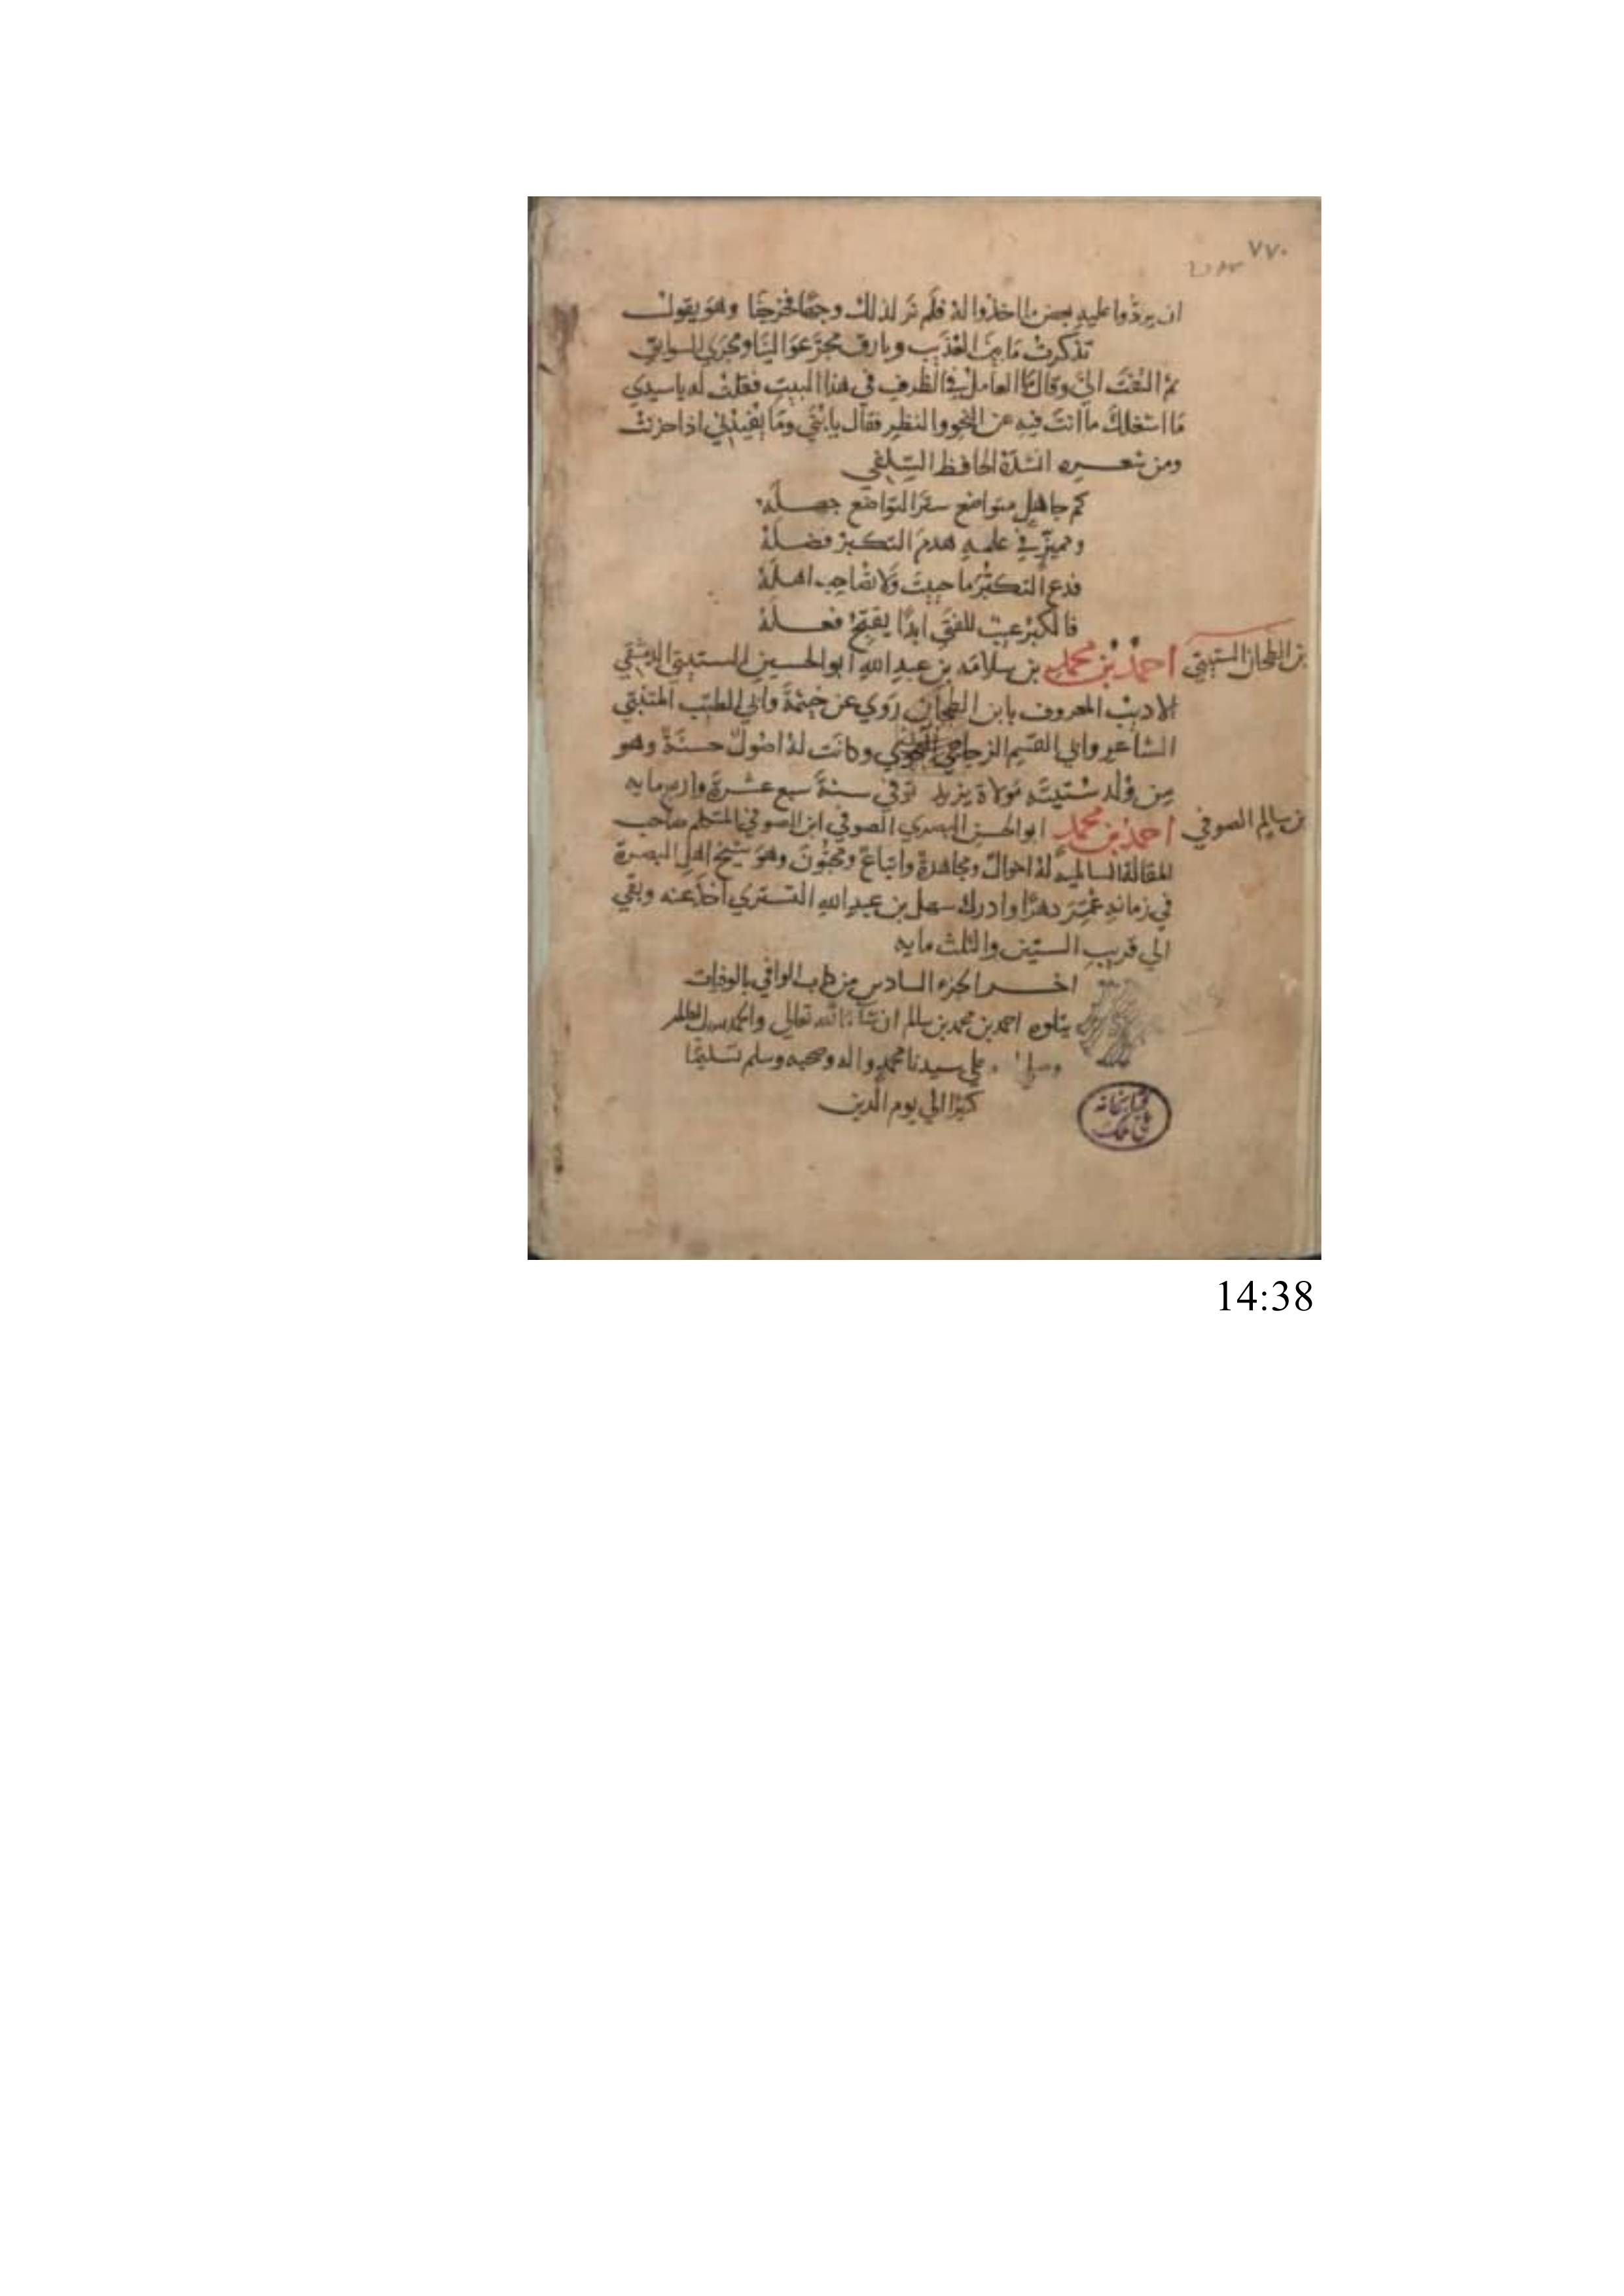 ٧٧٠
ان يردوا عليه بعض ما اخذوا له فلم تر لذلك وجها فخرجنا وهو يقول
تذكرت ما بين العذيب وبارق مجر عوالينا ومجرى السوابق
ثم التفت الي وقال ما العامل في الظرف في هذا البيت فقلت له يا سيدي
ما اشغلك ما انت فيه عن النحو والنظر فقال يا بني وما يفيدني اذا حزنت
ومن شعره انشده الحافظ السلفي
كم جاهل متواضع ستر التواضع جهله
ومميز في علمه هدم التكبر فضله
فدع التكبر ما حييت ولا تصاحب اهله
فالكبر عيب للفتى ابدا يقبح فعله
بن الطحان الستيتي
احمد بن محمد بن سلامه بن عبد الله ابو الحسين الستيتي الدمشقي
الاديب المعروف بابن الطحان روي عن خيثمة وابي الطيب المتنبي
الشاعر وابي القسم الزجاجي النحوي وكانت له اصول حسنة وهو
من ولد ستيتة مولاة يزيد توفي سنة سبع عشرة واربع مايه
بن سالم الصوفي
احمد بن محمد ابو الحسن البصري الصوفي ابن الصوفي المتكلم صاحب
المقالة السالمية له احوال ومجاهدة واتباع ومحبون وهو شيخ اهل البصرة
في زمانه عمر دهرا وادرك سهل بن عبد الله التستري اخذ عنه وبقي
الي قريب الستين والثلث مايه
اخر الجزء السادس من كتاب الوافي بالوفيات
يتلوه احمد بن محمد بن سالم ان شاء الله تعالي والحمد لله رب العالمين
وصلي علي سيدنا محمد واله وصحبه وسلم تسليما
كثيرا الي يوم الدين
كتابخانه
ملك
14:38